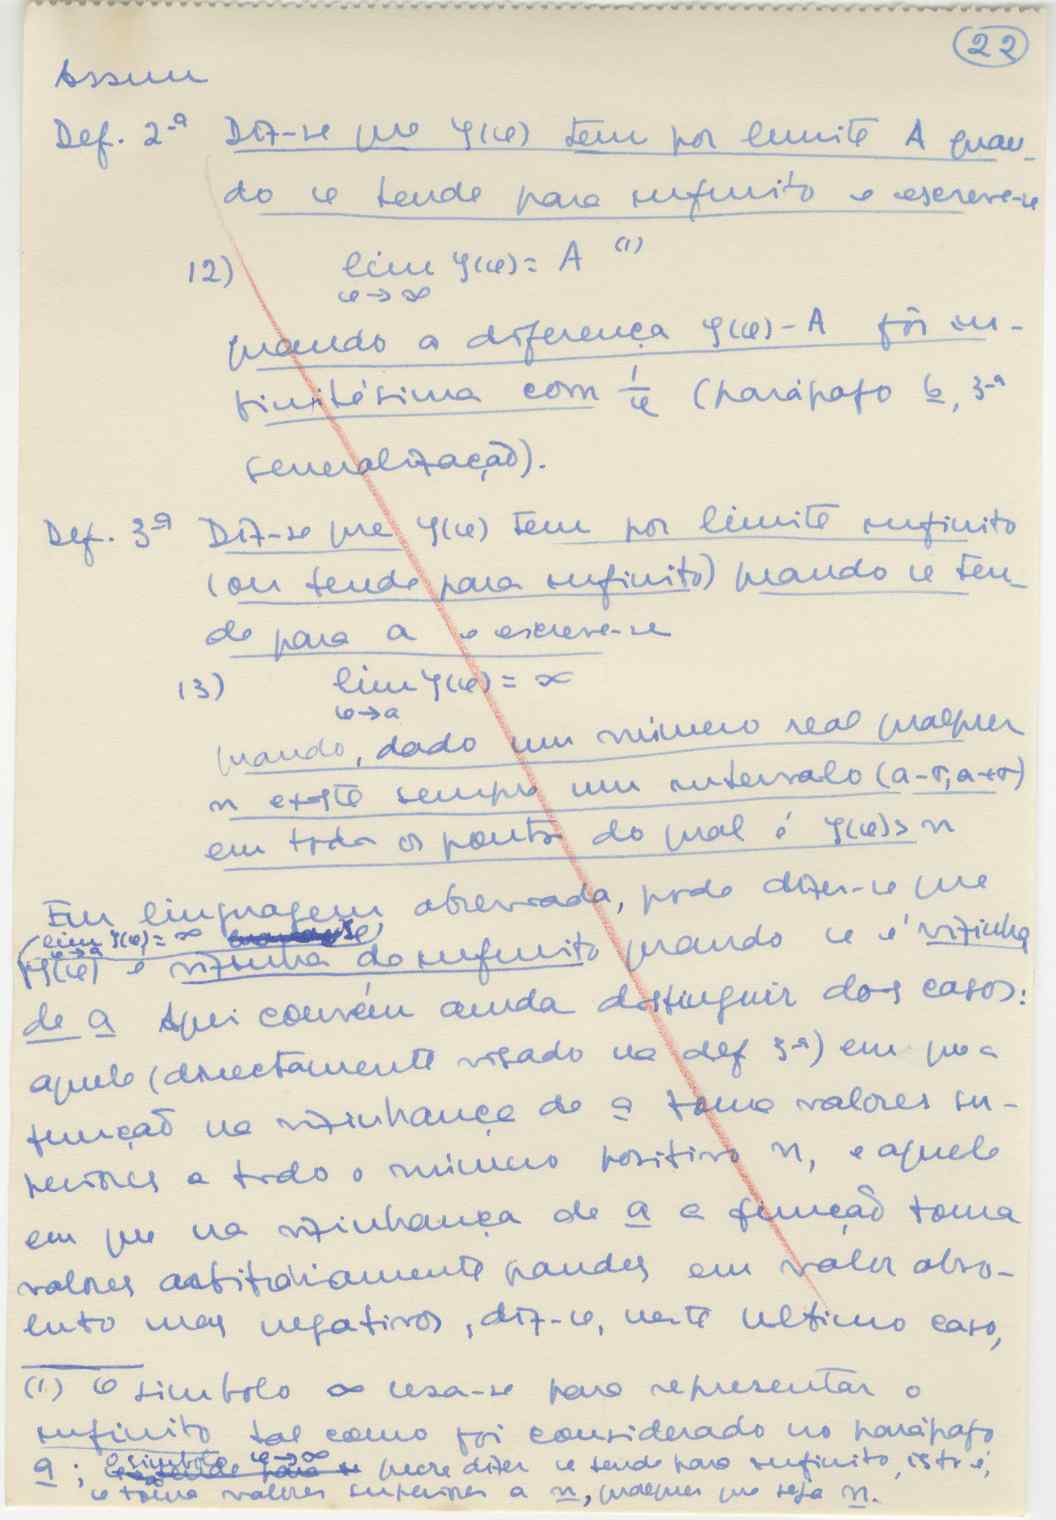 22
Assim
Def. 2ª Diz-se que φ(x) tem por limite A quan-
do x tende para infinito e escreve-se
12) lim φ(x) = A (1)
x→∞
quando a diferença φ(x)-A fôr in-
finitésima com 1/x (parágrafo 6, 3ª
generalização).
Def. 3ª Diz-se que φ(x) tem por limite infinito
(ou tende para infinito) quando x ten-
de para a e escreve-se
13) lim φ(x) = ∞
x→a
quando, dado um número real qualquer
n existe sempre um intervalo (a-σ, a+σ)
em todos os pontos do qual é φ(x)>n
Em linguagem abreviada, pode dizer-se que
(lim φ(x) = ∞ se)
x→a
φ(x) é vizinha do infinito quando x é vizinho
de a Aqui convém ainda distinguir dois casos:
aquele (directamente visado na def 3ª) em que a
função na vizinhança de a toma valores su-
periores a todo o número positivo n, e aquele
em que na vizinhança de a a função toma
valores arbitràriamente grandes em valor abso-
luto mas negativos, diz-se, neste ultimo caso,
(1) O simbolo ∞ usa-se para representar o
infinito tal como foi considerado no parágrafo
9; o simbolo x→∞ quere dizer x tende para infinito, isto é,
x toma valores superiores a n, qualquer que seja n.